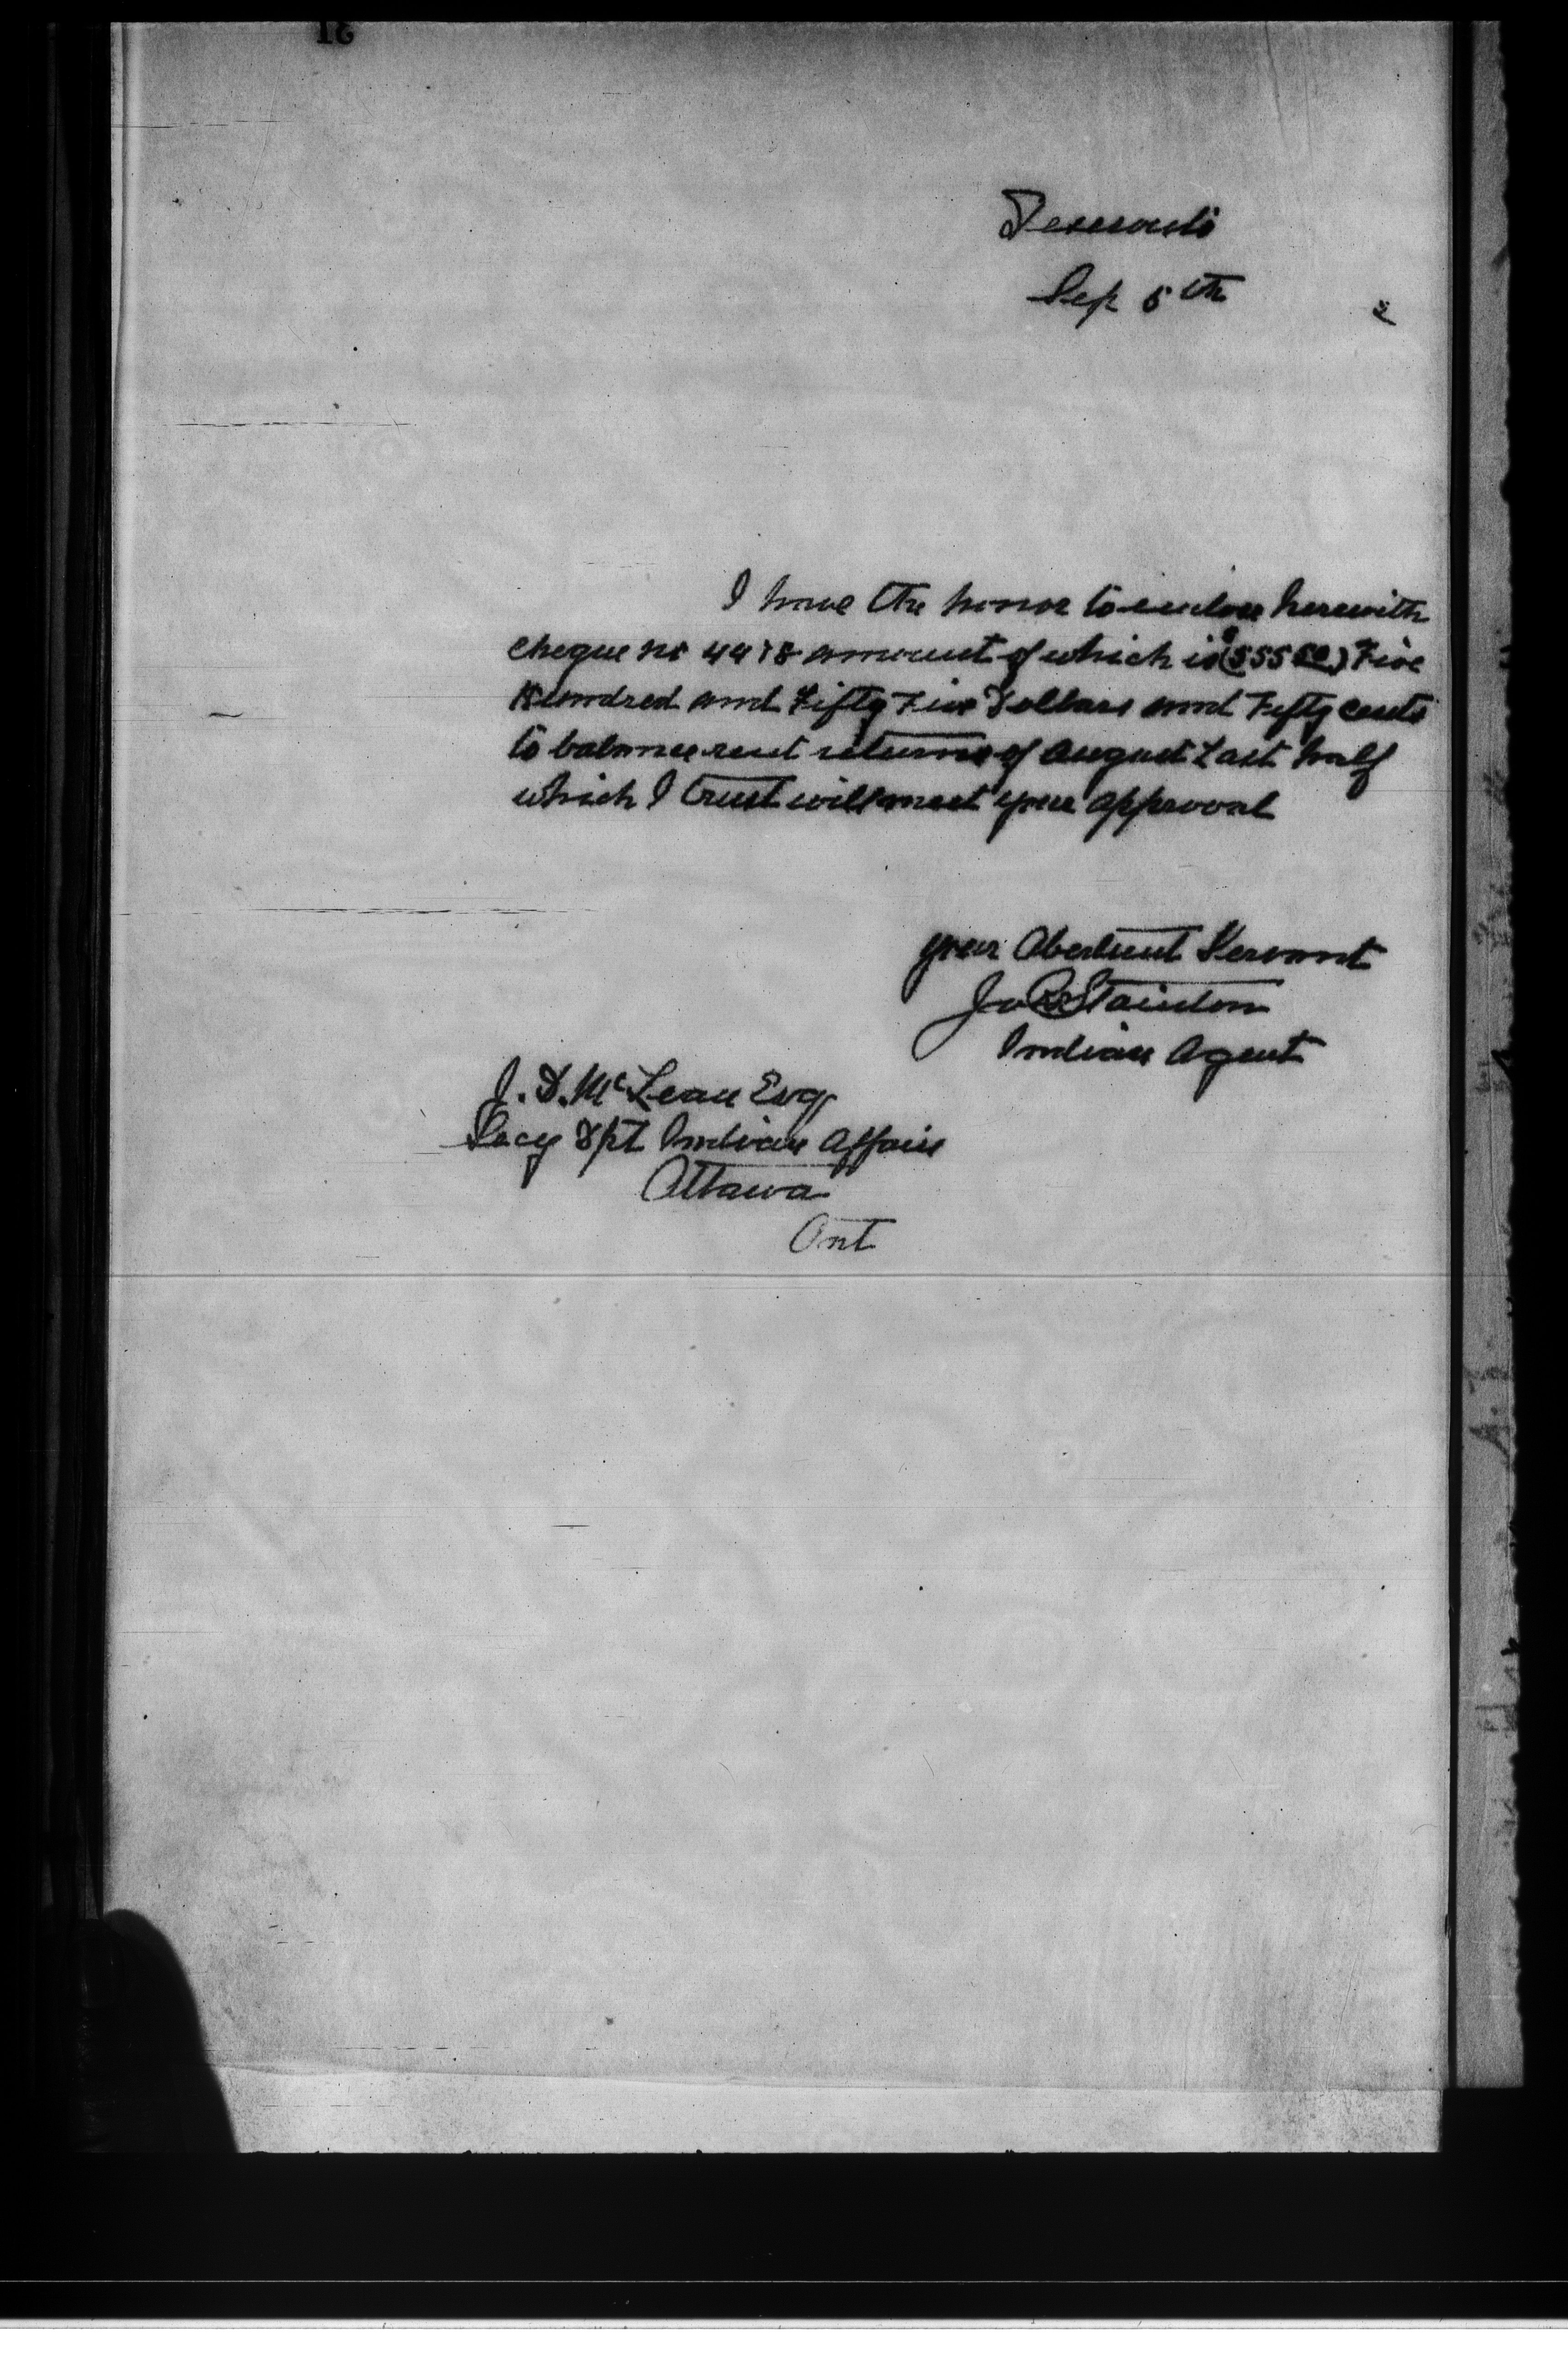 Deseronto
Sep 5th 2
I have the honor to enclose herewith
cheque no 4478 amount of which is ($555 50) Five
Hundred and Fifty Five Dollars and Fifty cents
to balance rent returns of August Last half
which I trust will meet your approval
your Obedient Servant
Stainton
Indian Agent
J. D. McLean Esq
Secy Dpt Indian Affairs
Ottawa
Ont